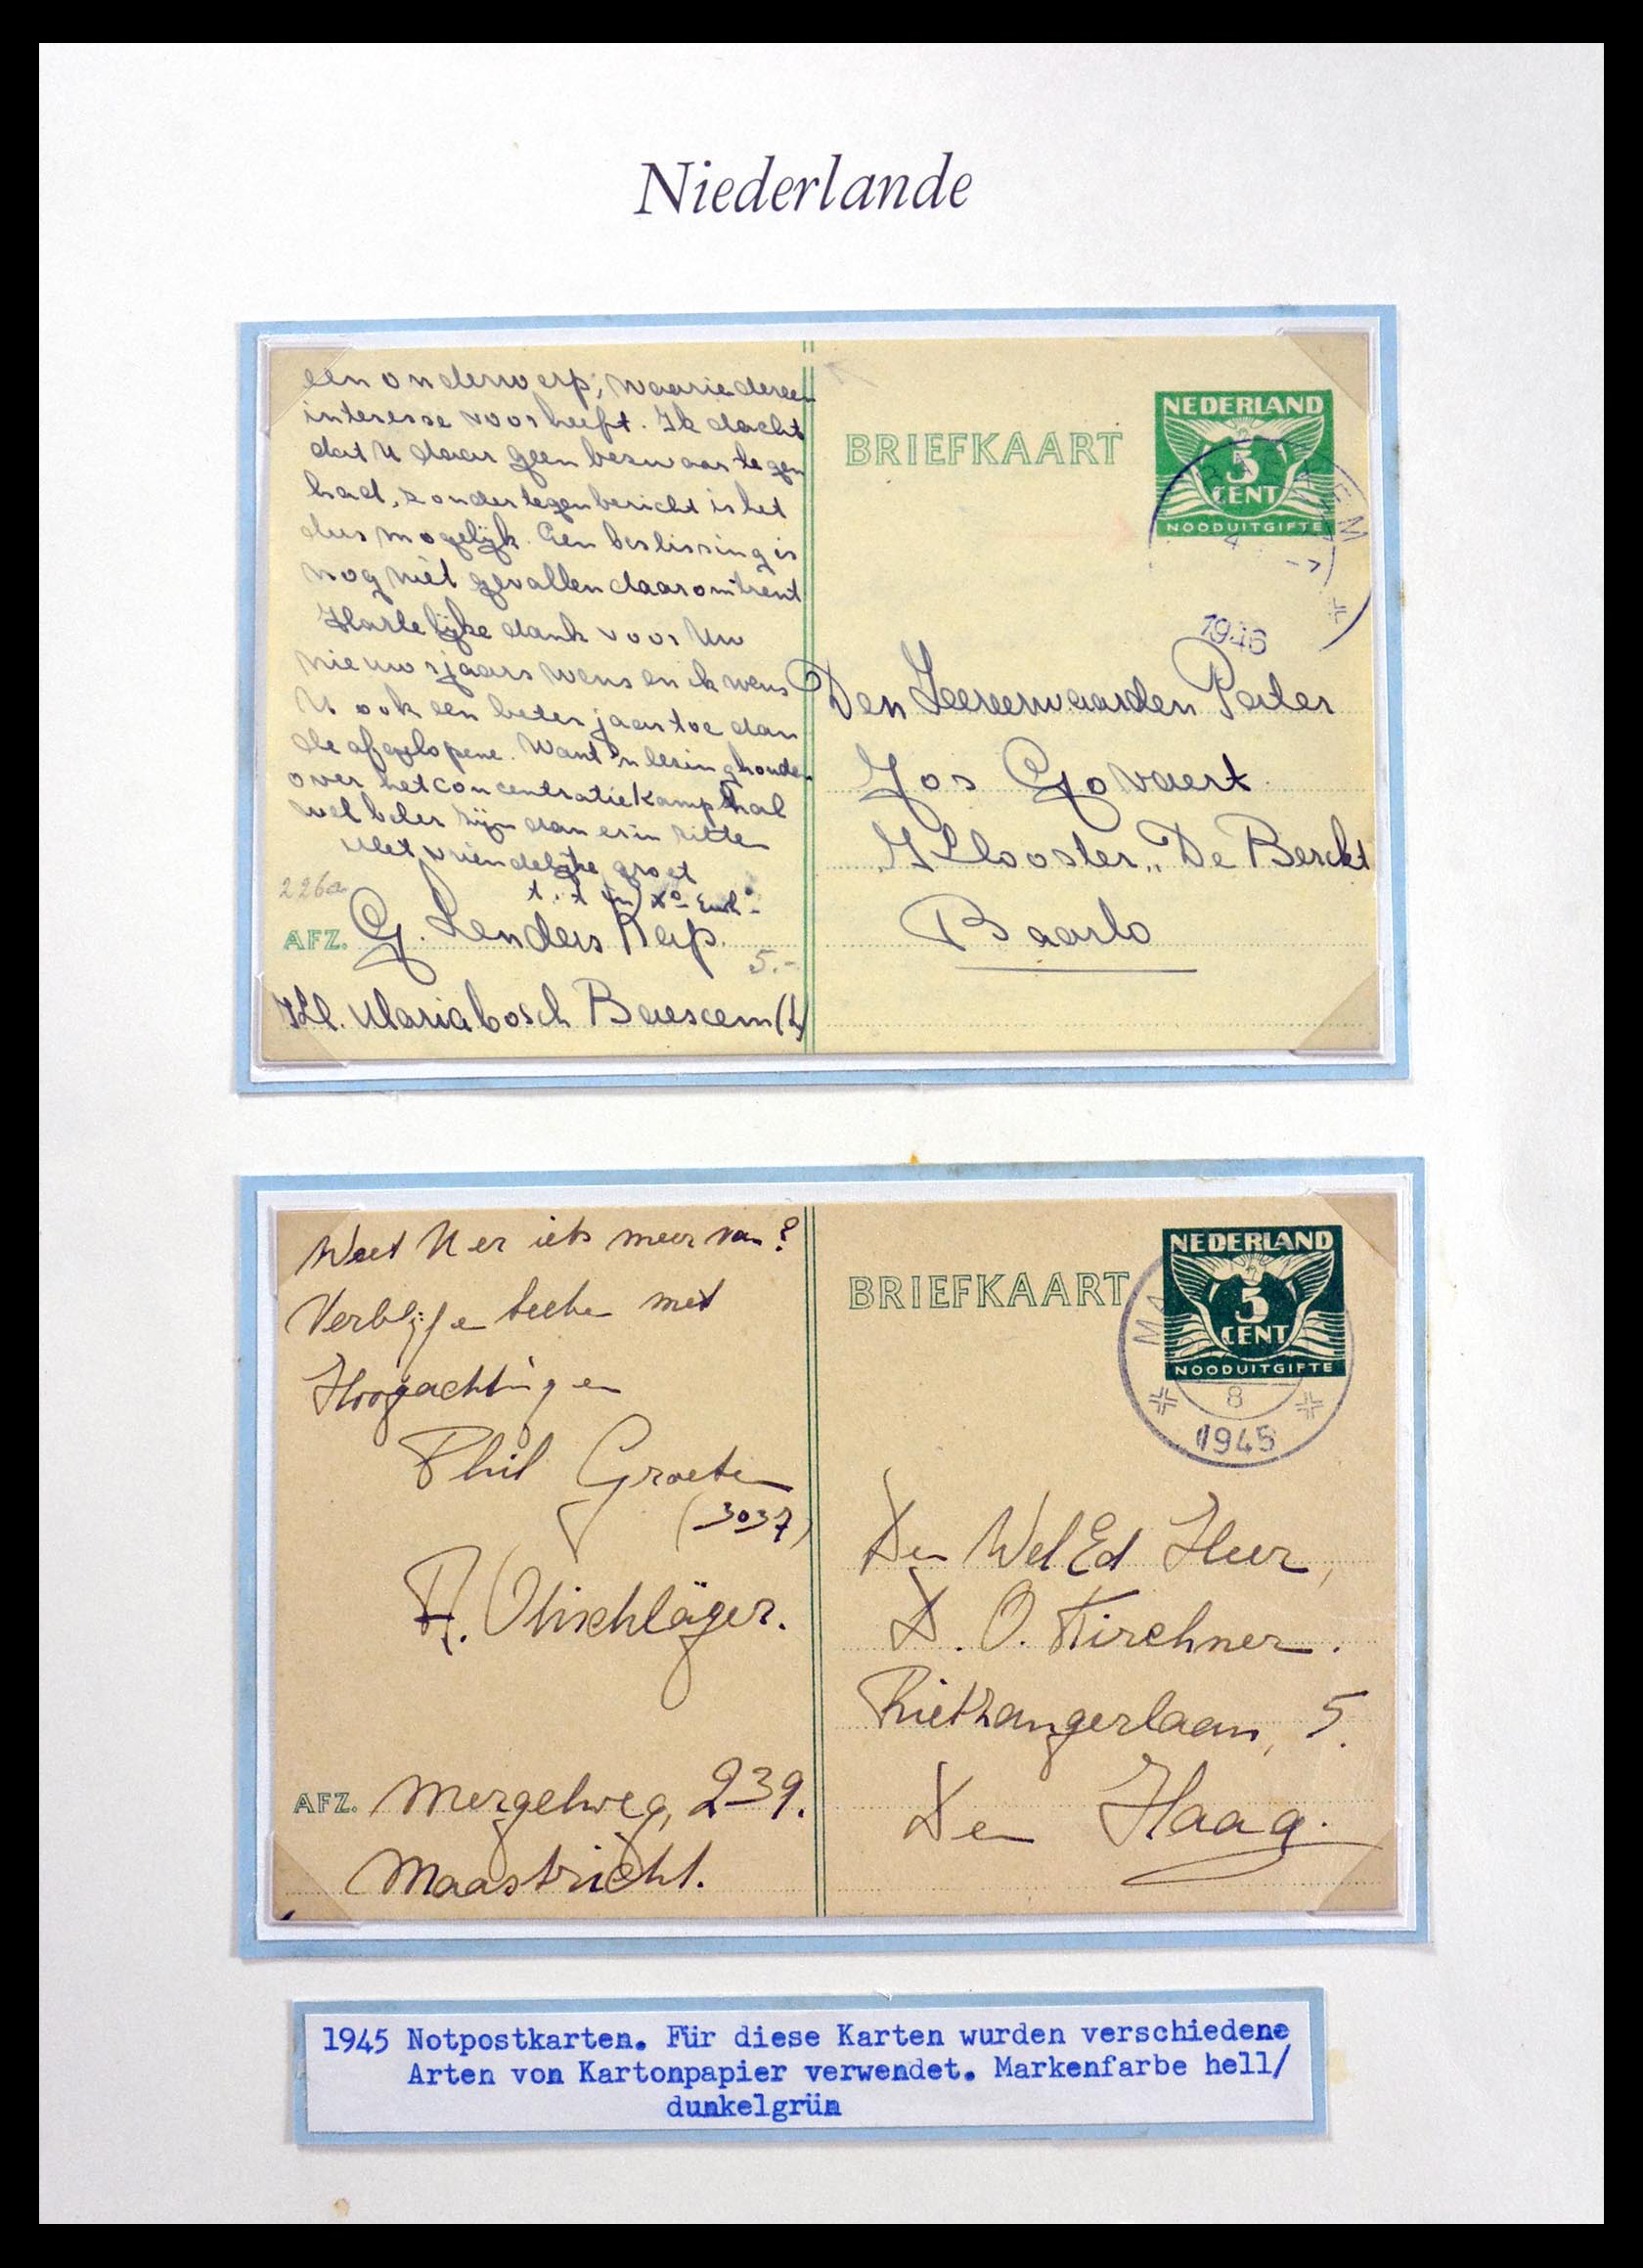 Niederlande
een onderwerp, waar iedereen
interesse voor heeft. Ik dacht
dat U daar geen bezwaar tegen
had, zonder tegenbericht is het
dus mogelijk. Een beslissing is
nog niet gevallen daaromtrent
Hartelijke dank voor Uw
nieuwsjaars wens en ik wens
U ook een beter jaar toe dan
de afgelopene. Want 'n lezing houden
over het concentratiekamp zal
wel beter zijn dan erin zitten
Met vriendelijke groet
t.t. in Xº
226a
AFZ. G. Lenders Kap.
5.-
Kl. Mariabosch Baexem (L)
BRIEFKAART
NEDERLAND
5
CENT
NOODUITGIFTE
BAEXEM
4
1946
Den Zeereerwaarden Pater
Jos Govaert
Klooster "De Berckt
Baarlo
Weet U er iets meer van?
Verblijve steeds met
Hoogachting en
Phil Groeten
(3037)
Mergelweg, 239.
AFZ.
Maastricht.
BRIEFKAART
NEDERLAND
5
CENT
NOODUITGIFTE
MA
8
1945
Den WelEd Heer,
D. O. Kirchner.
Riethangerlaan, 5.
Den Haag.
1945 Notpostkarten. Für diese Karten wurden verschiedene
Arten von Kartonpapier verwendet. Markenfarbe hell/
dunkelgrün